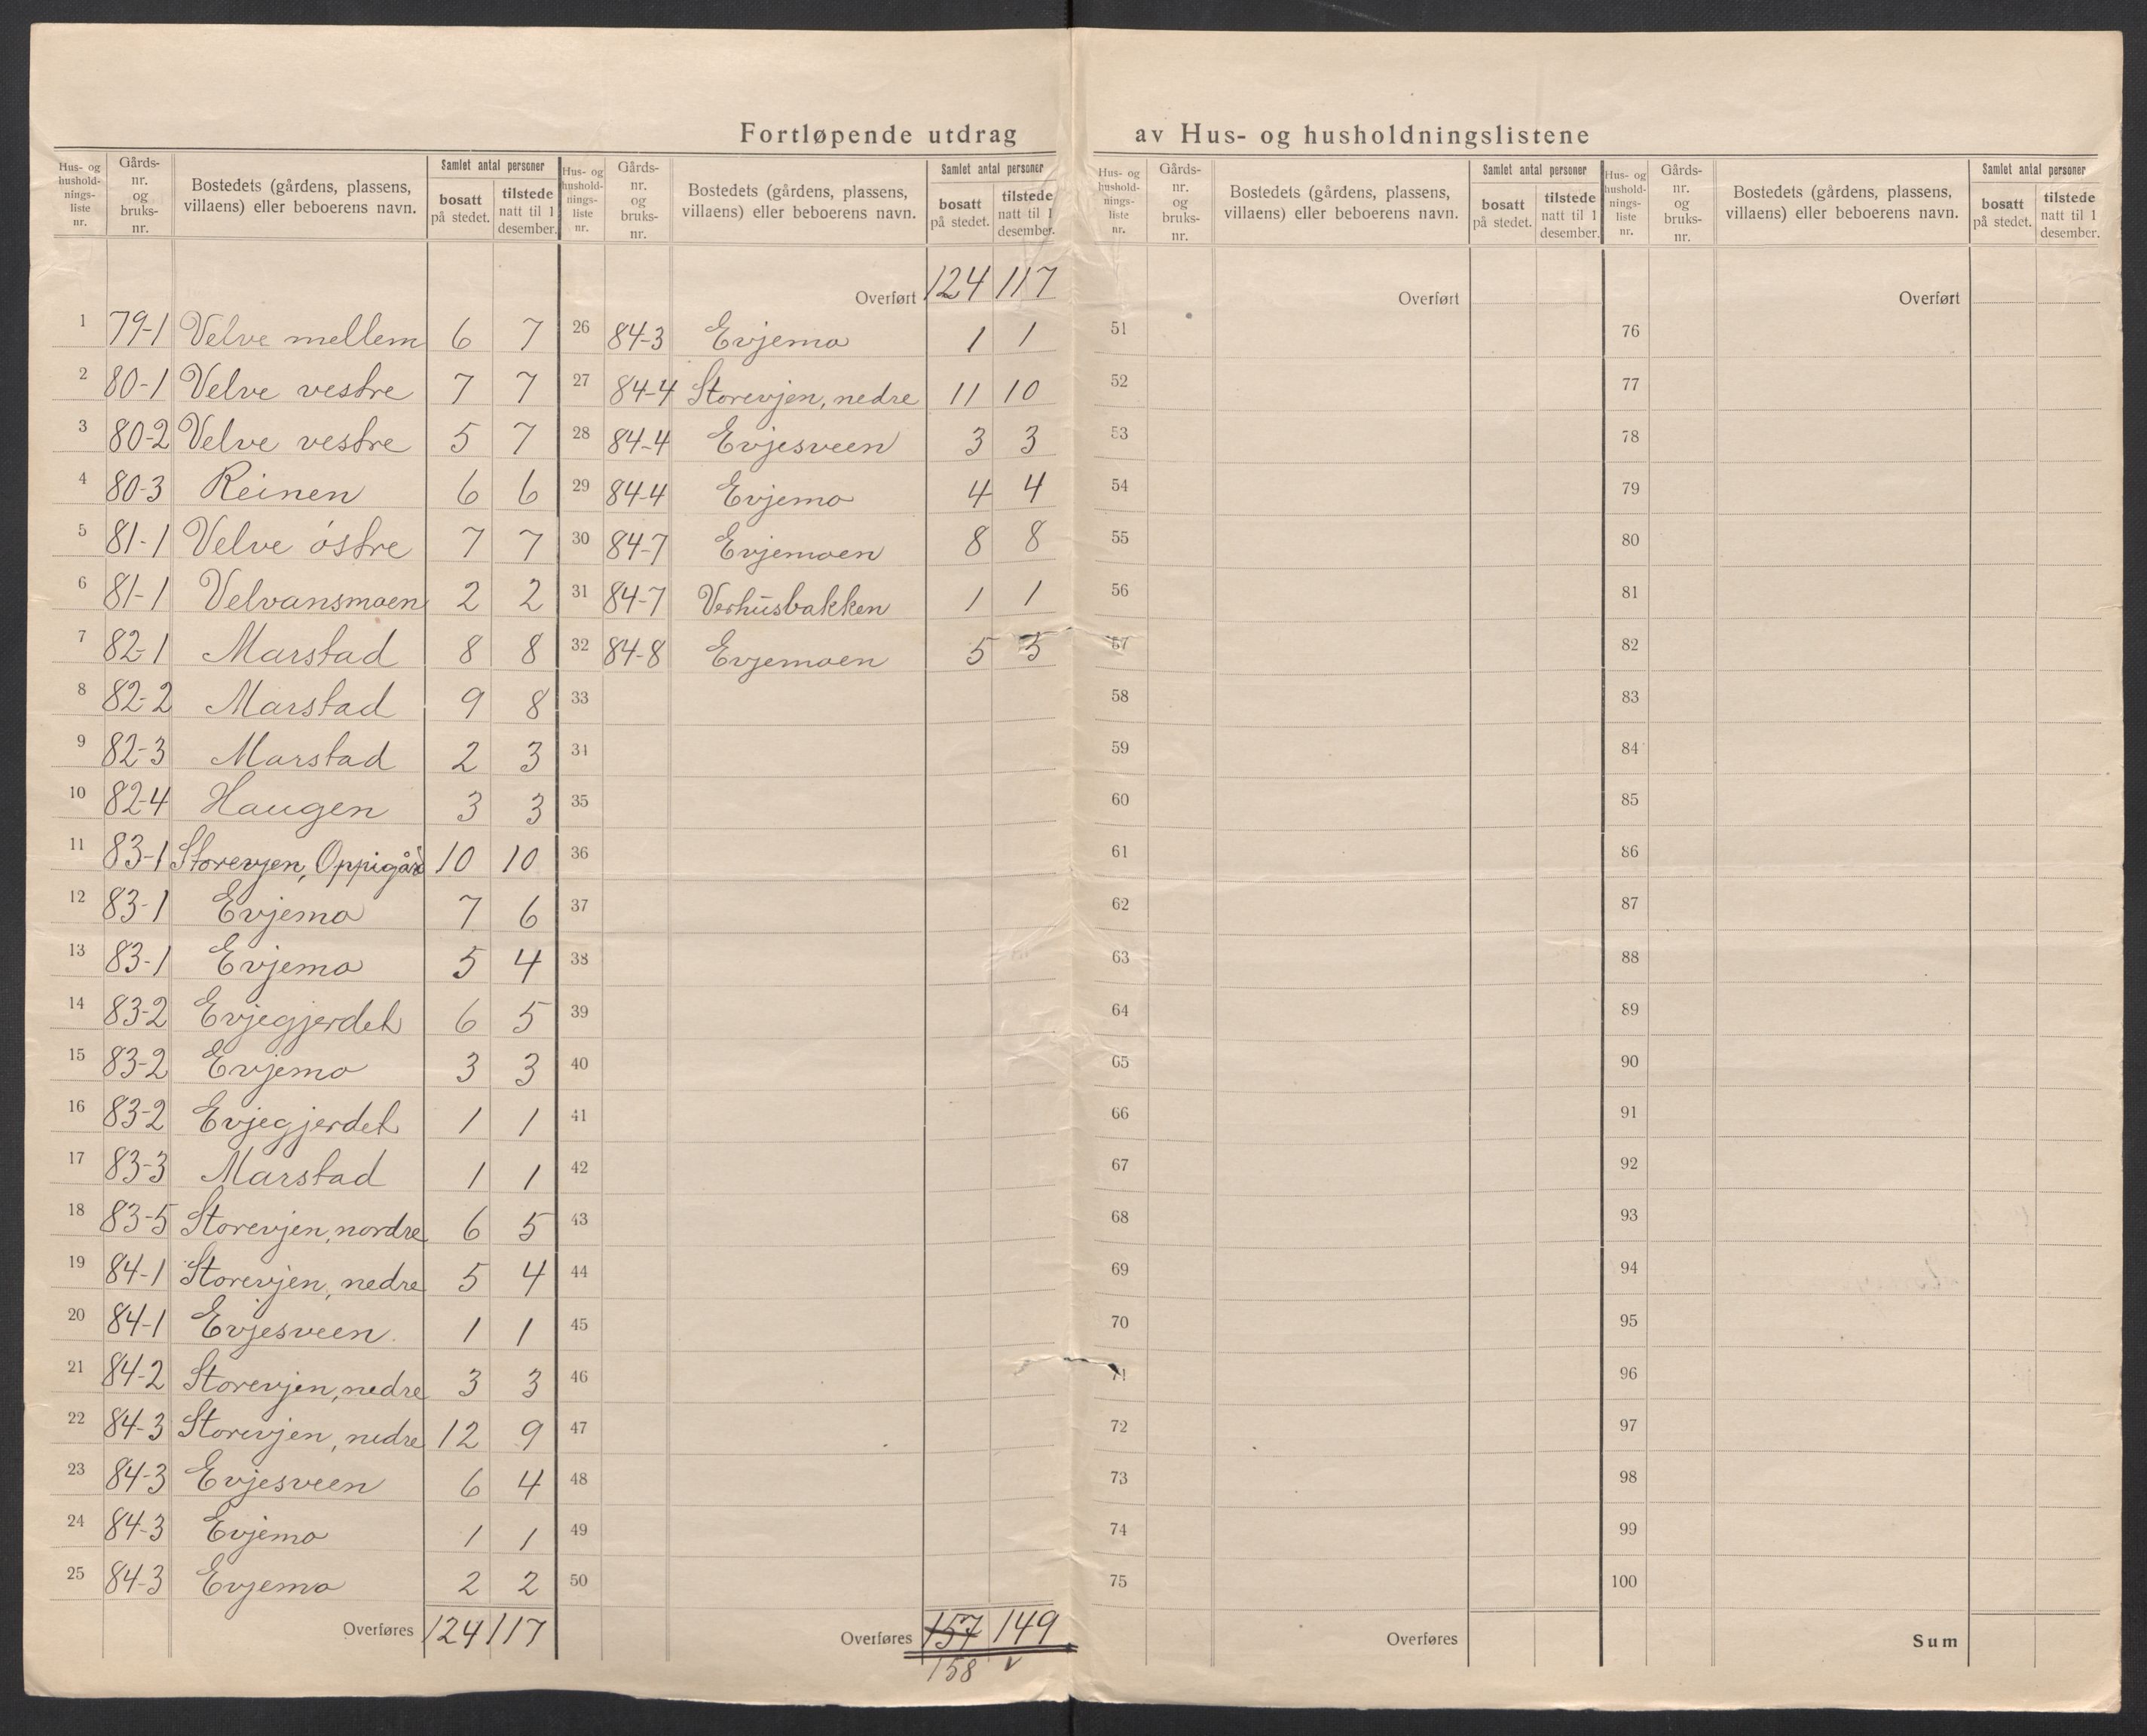 Fortløpende utdrag av Hus- og husholdningslistene
Hus- og hushold-nings-liste nr. Gårds-nr. og bruks-nr. Bostedets (gårdens, plassens, villaens) eller beboerens navn. Samlet antal personer bosatt på stedet. tilstede natt til 1 desember.
1 79-1 Velve mellem 6 7
2 80-1 Velve vestre 7 7
3 80-2 Velve vestre 5 7
4 80-3 Reinen 6 6
5 81-1 Velve østre 7 7
6 81-1 Velvansmoen 2 2
7 82-1 Marstad 8 8
8 82-2 Marstad 9 8
9 82-3 Marstad 2 3
10 82-4 Haugen 3 3
11 83-1 Storevjen, Oppigård 10 10
12 83-1 Evjemo 7 6
13 83-1 Evjemo 5 4
14 83-2 Evjegjerdet 6 5
15 83-2 Evjemo 3 3
16 83-2 Evjegjerdet 1 1
17 83-3 Marstad 1 1
18 83-5 Storevjen, nordre 6 5
19 84-1 Storevjen, nedre 5 4
20 84-1 Evjesveen. 1 1
21 84-2 Storevjen, nedre 3 3
22 84-3 Storevjen, nedre 12 9
23 84-3 Evjesveen 6 4
24 84-3 Evjemo 1 1
25 84-3 Evjemo 2 2
Overføres 124 117
Hus- og hushold-nings-liste nr. Gårds-nr. og bruks-nr. Bostedets (gårdens, plassens, villaens) eller beboerens navn. Samlet antal personer bosatt på stedet. tilstede natt til 1 desember.
Overført 124 117
26 84-3 Evjemo 1 1
27 84-4 Storevjen, nedre 11 10
28 84-4 Evjesveen 3 3
29 84-4 Evjemo 4 4
30 84-7 Evjemoen 8 8
31 84-7 Verhusbakken 1 1
32 84-8 Evjemoen 5 5
33
34
35
36
37
38
39
40
41
42
43
44
45
46
47
48
49
50
Overføres 157 149
158 v
Hus- og hushold-nings-liste nr. Gårds-nr. og bruks-nr. Bostedets (gårdens, plassens, villaens) eller beboerens navn. Samlet antal personer bosatt på stedet. tilstede natt til 1 desember.
Overført
51
52
53
54
55
56
57
58
59
60
61
62
63
64
65
66
67
68
69
70
71
72
73
74
75
Overføres
Hus- og hushold-nings-liste nr. Gårds-nr. og bruks-nr. Bostedets (gårdens, plassens, villaens) eller beboerens navn. Samlet antal personer bosatt på stedet. tilstede natt til 1 desember.
Overført
76
77
78
79
80
81
82
83
84
85
86
87
88
89
90
91
92
93
94
95
96
97
98
99
100
Sum